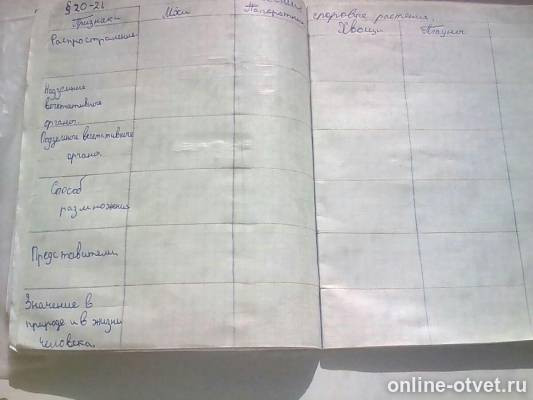 § 20-21
споровые растения.
Признаки Мхи Папоротник Хвощи Плауны
Распространение
Надземные
вегетативные
органы.
Подземные вегетативные
органы.
Способ
размножения
Представители
Значение в
природе и в жизни
человека.
online-otvet.ru